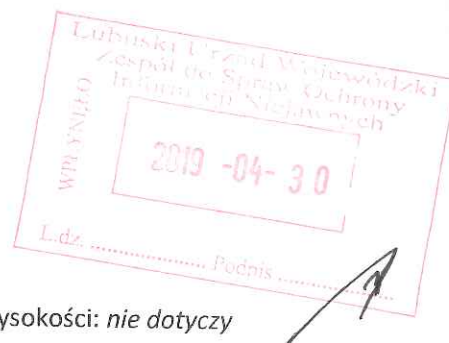 Lubuski Urząd Wojewódzki
Zespół do Spraw Ochrony
Informacji Niejawnych
WPŁYNĘŁO
2019 -04- 30
L.dz. ........................ Podpis ........................
ysokości: nie dotyczy